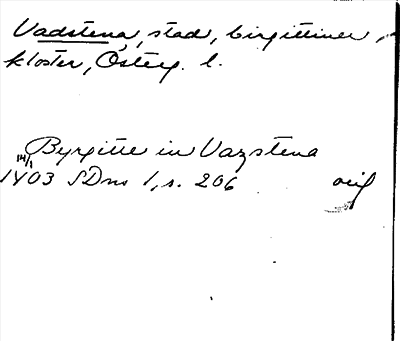 Vadstena, stad, birgittiner,-
kloster, Österg. l.
Byrgitte in Vazstena
14/1
1403 SDns 1, s. 206 orig